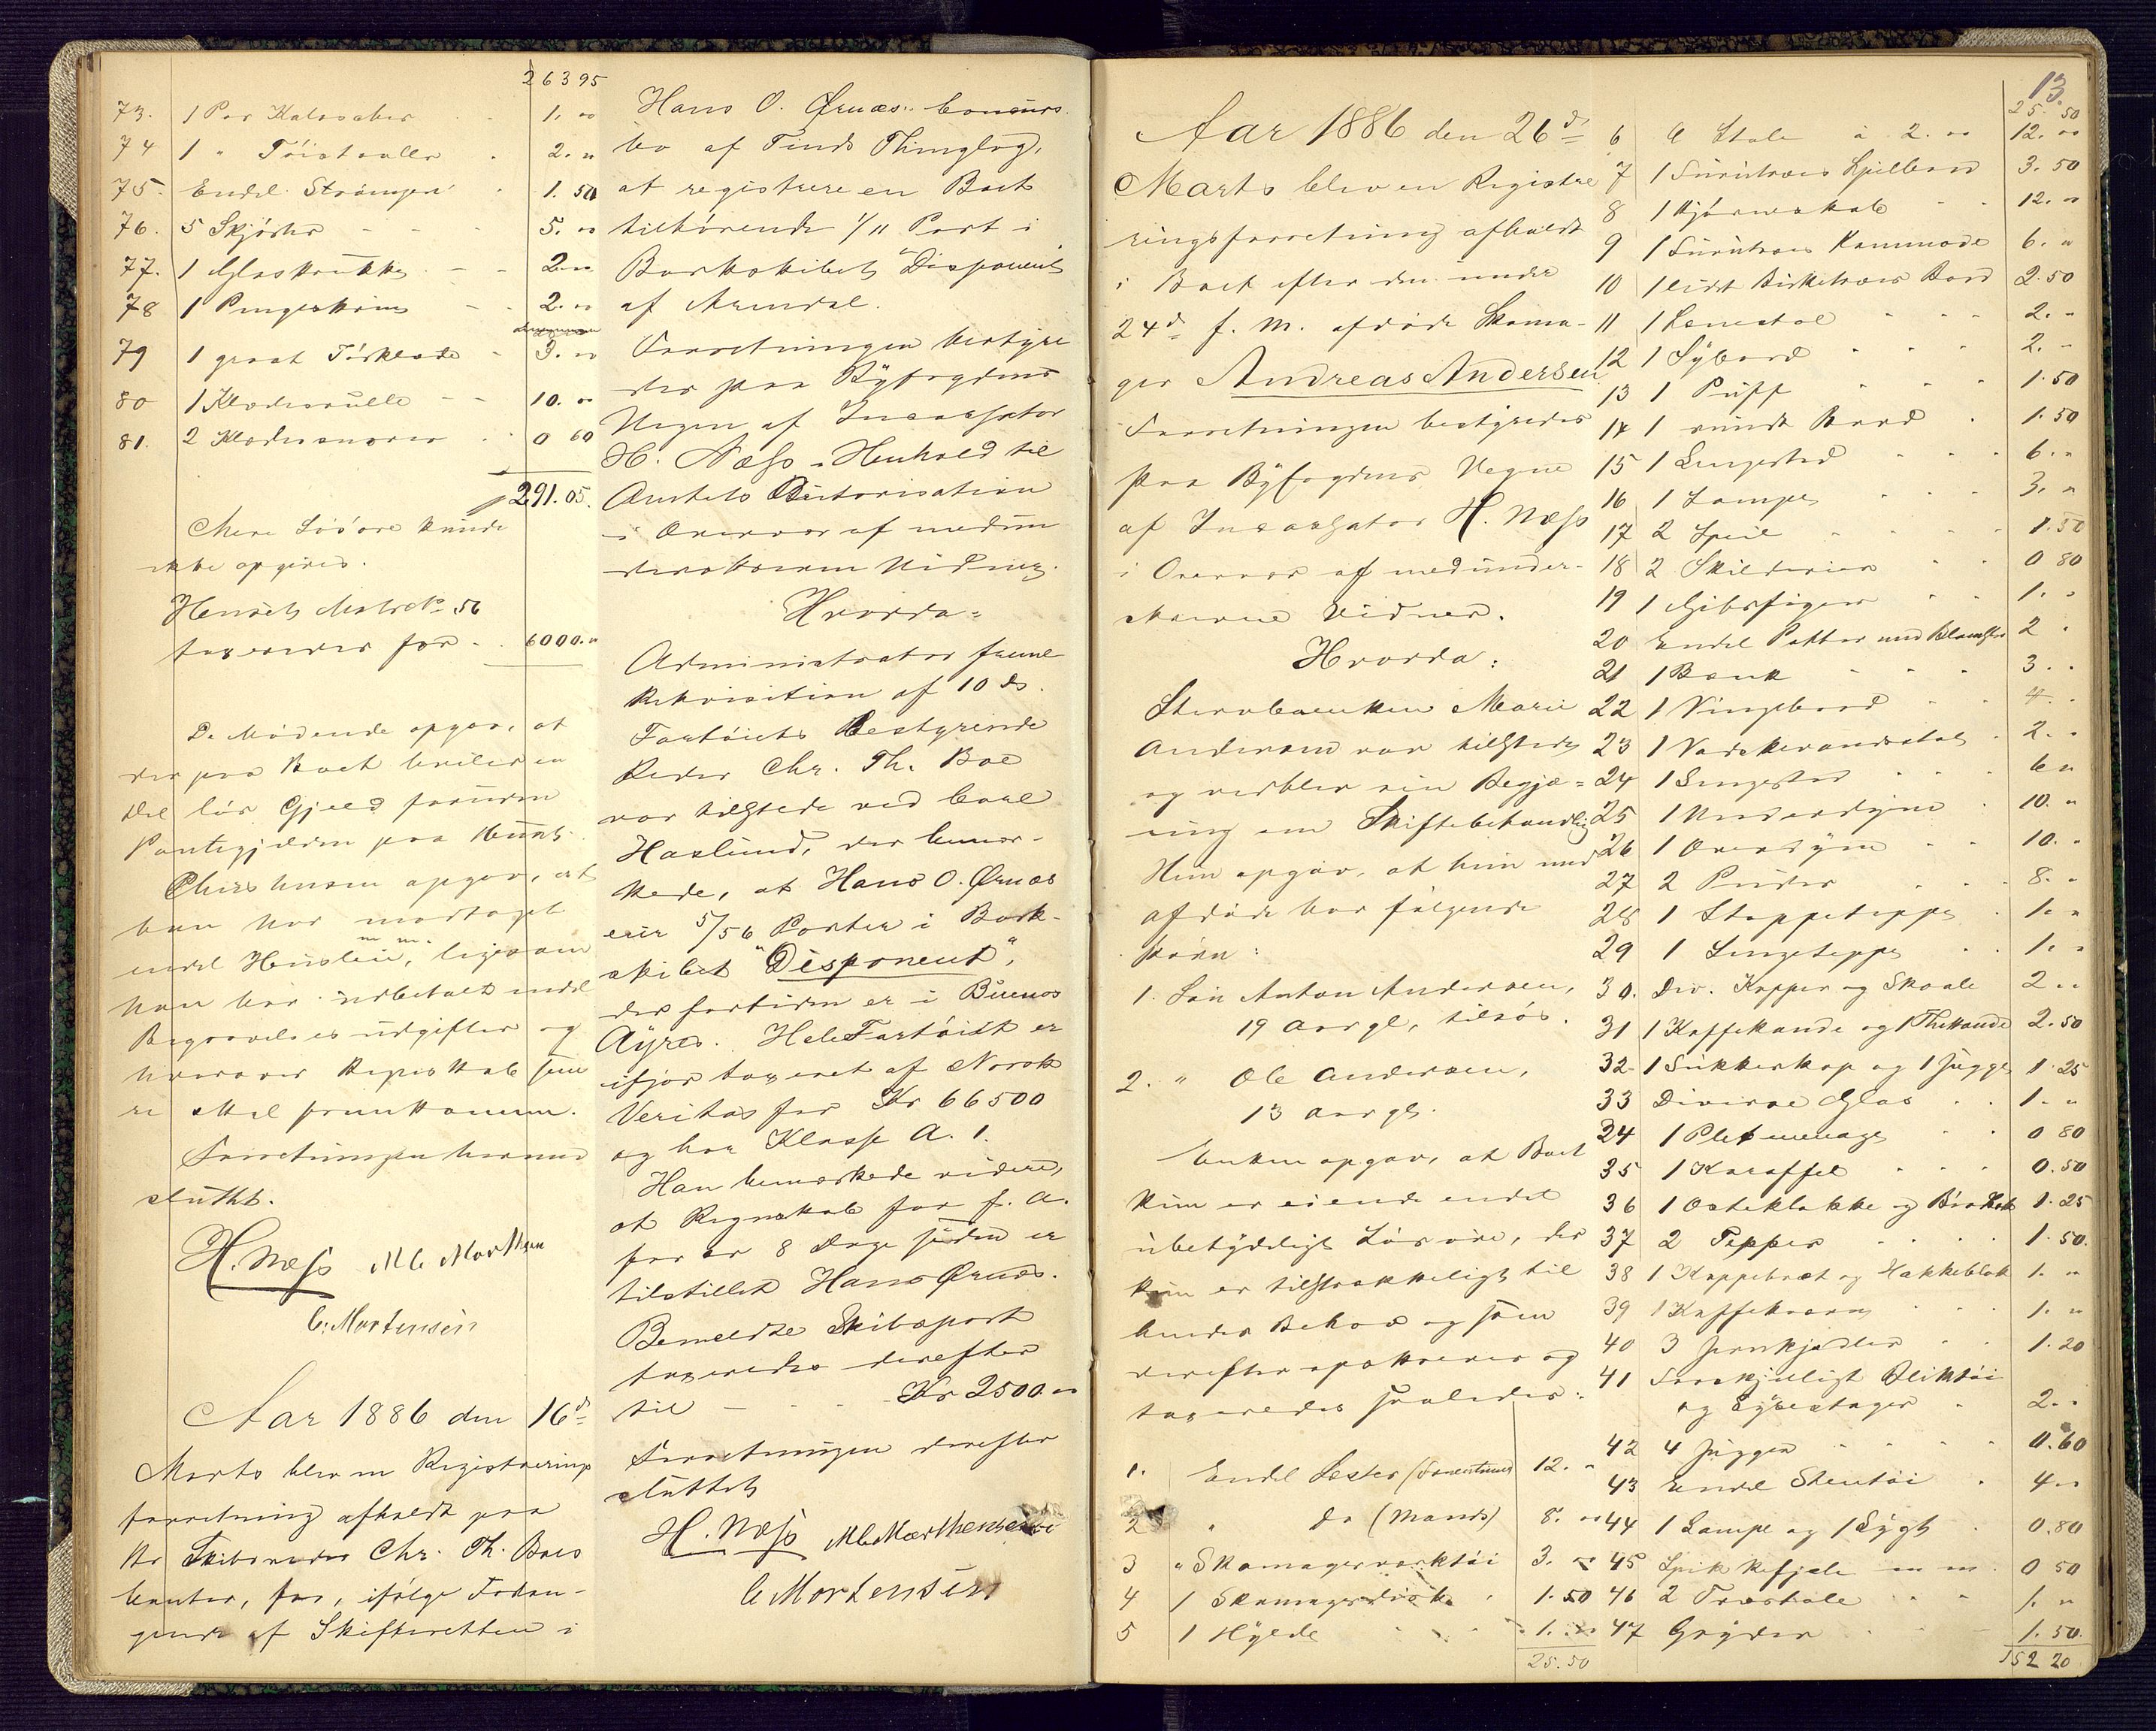 263 95
73. 1 Par Kalosker 1. "
74 1 " Töistövler 2. "
75. Endel Strömper 1. 50
76. 5 Skjörter 5. "
77. 1 Glaskrukke 2. "
78 1 Pengeskrin 2. "
79 1 graat Törklæde 3. "
80 1 Klæderulle 10. "
81. 2 Klædesnorer 0 60
291.05.
Mere Lösöre kunde
ikke opgives.
Husets Matr No 56
taxeredes for 6000. "
De Mödende opgav, at
der paa Boet hviler en
Del lös Gjæld foruden
Pantegjælden paa Huset.
opgav, at
han har modtaget
endel Husleie, m. m. ligesom
han har udbetalt endel
Begravelsesudgifter og
hvorover Regnskab sene
re skal fremkomme.
Forretningen hermed
sluttet.
H. Næss M C Morthensen
C. Mortensen
Aar 1886 den 16d
Marts blev en Registrerings
forretning afholdt paa
Hr Skibsreder Chr. Th. Boes
Contor, for, ifölge Forlan-
gende af Skifteretten i
Hans O. Örnæs Concurs
bo af Tinds Thinglag,
at registrere en Boet
tilhörende 1/11 Part i
Barkskibet "Disponent"
af Arendal.
Forretningen bestyre
des paa Byfogdens
Vegne af Incassator
H. Næss i Henhold til
Amtets Autorisation
i Overvær af medun
derskrevne Vidner.
Hvorda:
Administrator freml
Rekvisition af 10 ds.
Fartöiets Bestyrende
Reder Chr. Th. Boe
var tilstede ved Carl
Haslund, der bemær-
kede, at Hans O. Örnæs
eier 5/56 Parter i Bark-
skibet "Disponent",
der fortiden er i Buenos
Ayres. Hele Fartöiet er
ifjor taxeret af Norsk
Veritas for Kr 66500
og har Klasse A. 1.
Han bemærkede videre,
at Regnskab for f. A.
for ca 8 Dage siden er
tilstillet Hans Örnæs.
Bemeldte Skibspart
taxeredes derefter
til Kr 2500. "
Forretningen derefter
sluttet
H. Næss M C Morthensen
C Mortensen
13
Aar 1886 den 26d
Marts blev en Registre
ringsforretning afholdt
i Boet efter den under
24d f. M. afdöde Skoma-
ger Andreas Andersen
Forretningen bestyredes
paa Byfogdens Vegne
af Incassator H. Næss
i Overvær af medunder-
skrevne Vidner.
Hvorda:
Stervboenken Marie
Andersen var tilstede
og vedblev sin Begjæ-
ring om Skiftebehandlig
Hun opgav, at hun med
afdöde har fölgende
Börn:
1. Sön Anton Andersen,
19 Aar gl, tilsös.
2. " Ole Andersen,
13 Aar gl.
Enken opgav, at Boet
kun er eiende endel
ubetydeligt Lösöre, der
kun er tilstrækkeligt til
hendes Behov og som
derefter opskreves og
taxeredes saaledes:
1. Endel Læster 12. "
2 " do (Mands) 8. "
3 " Skomagerværktöi 3. "
4 1 Skomagerdisk 1. 50
5 1 Hylde 1. "
25. 50
25. 50
6 6 Stole à 2. " 12. "
7 1 Furutræes Spillebord 3. 50
8 1 Hjörneskab 12. "
9 1 Furutræes Kommode 6. "
10 1 lidt Birketræes Bord 2. 50
11 1 Lænestol 2. "
12 1 Sybord 2. "
13 1 Puff 1. 50
14 1 rundt Bord 1. 50
15 1 Sengested 6. "
16 1 Lampe 3. "
17 2 Speil 1. 50
18 2 Skilderier 0 80
19 1 Gibsfigur 1. "
20 Endel Potter med Blomster 2 "
21 1 Bænk 3. "
22 1 Vingebord 4. "
23 1 Vadskevandsstol 2. "
24 1 Sengested 6 "
25 1 Underdyne 10. "
26 1 Overdyne 10. "
27 2 Puder 8. "
28 1 Stoppeteppe 1. "
29 1 Sengeteppe 1. "
30. Div. Kopper og Skaale 2 "
31 1 Kaffekande og 1 Thekande 2. 50
32 1 Sukkerkop og 1 Jugge 1. 25
33 Diverse Glas 1. "
24 1 Pletmenage 0 80
35 1 Karaffel 0. 50
36 1 Osteklokke og Brödkob 1. 25
37 2 Tepper 1. 50.
38 1 Kappebræt og Hakkeblok 1. "
39 1 Kaffekværn 1. "
40 3 Jernkjedler 1. 20
41 Forskjelligt Bliktöi
og Lysestager 2. "
42 4 Juggen 0. 60
43 Endel Stentöi 4 "
44 1 Lampe og 1 Lygt 0. 80
45 Spikkefjele m m. 0 50
46 2 Træstole 1. "
47 Gryder 1. 50.
152 20